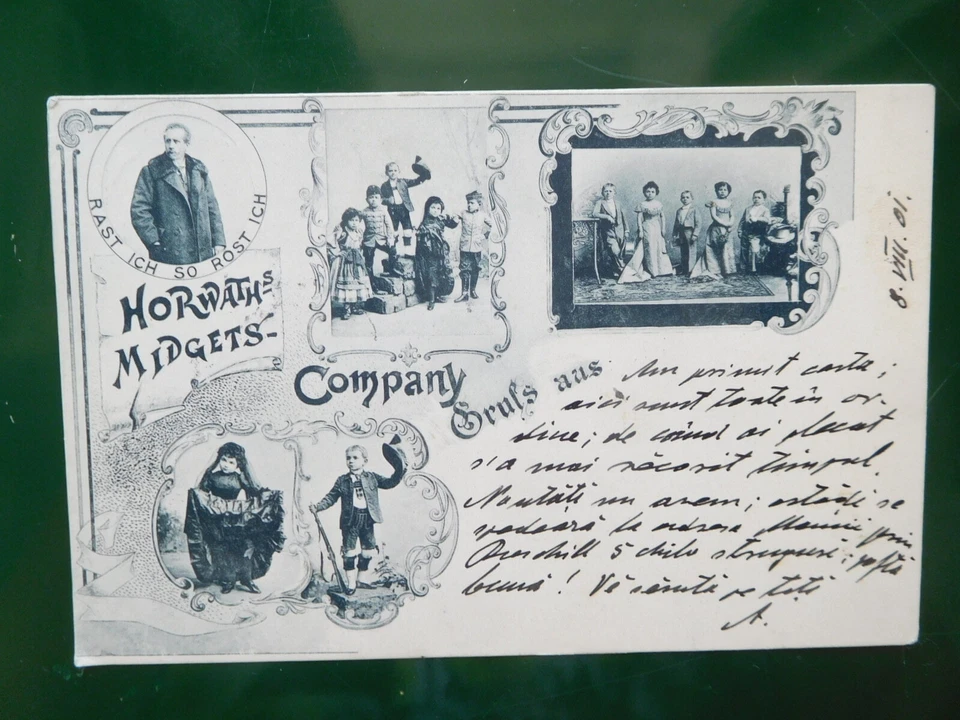 RAST ICH SO ROST ICH
HORWATHS
MIDGETS-
Company
Gruss aus
8.VIII.01.
Am primit carta;
aici sunt toate în or-
dine; de când ai plecat
s'a mai răcorit timpul.
Noutăți nu avem; astădi se
la adresa prin
5 chile struguri; poftă
bună! Vă sărută pe toți
A.